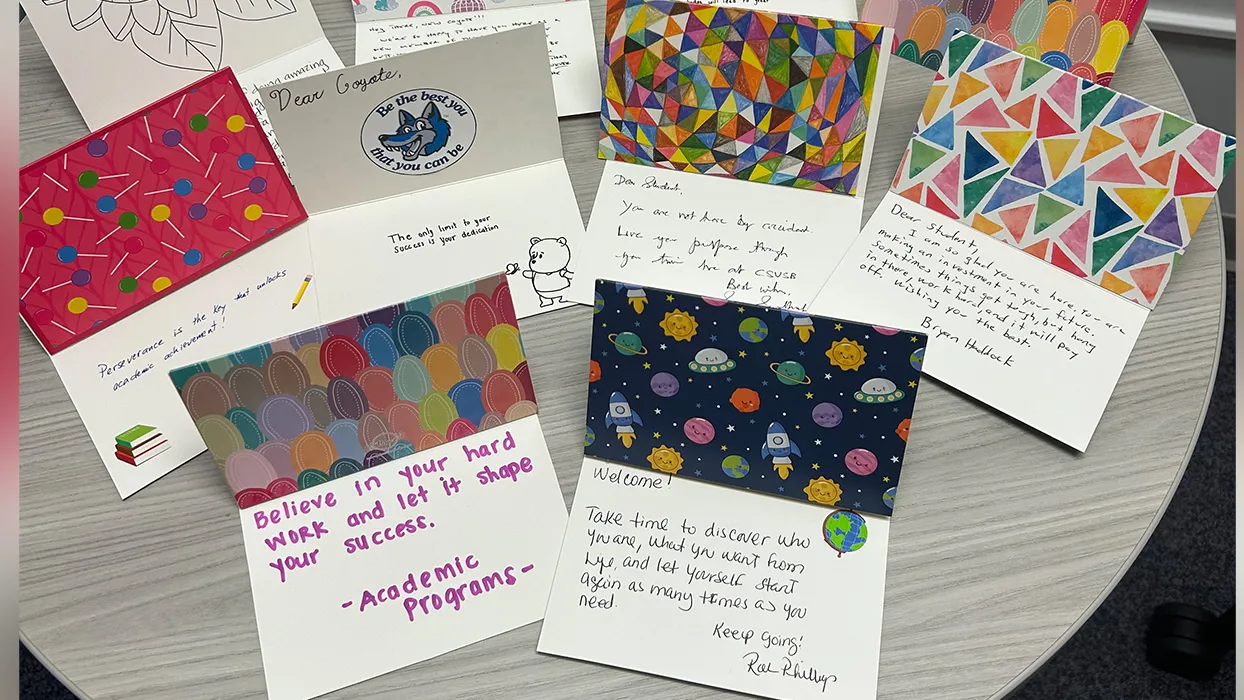 Hey there, new coyote!!!
doing amazing
Dear Coyote,
Be the best you
that you can be
The only limit to your
success is your dedication
Perseverance is the key that unlocks
academic achievement!
Dear Student,
You are not here by accident
Live your purpose through
your time here at CSUSB
Best wishes,
Dear Student,
I am so glad you are here. You are
making an investment in your future.
Sometimes things get tough, but hang
in there, work hard, and it will pay
off. Wishing you the best.
Bryan Haddock
Believe in your hard
work and let it shape
your success.
-Academic
Programs-
Welcome!
Take time to discover who
you are, what you want from
life, and let yourself start
again as many times as you
need.
Keep going!
Phillips